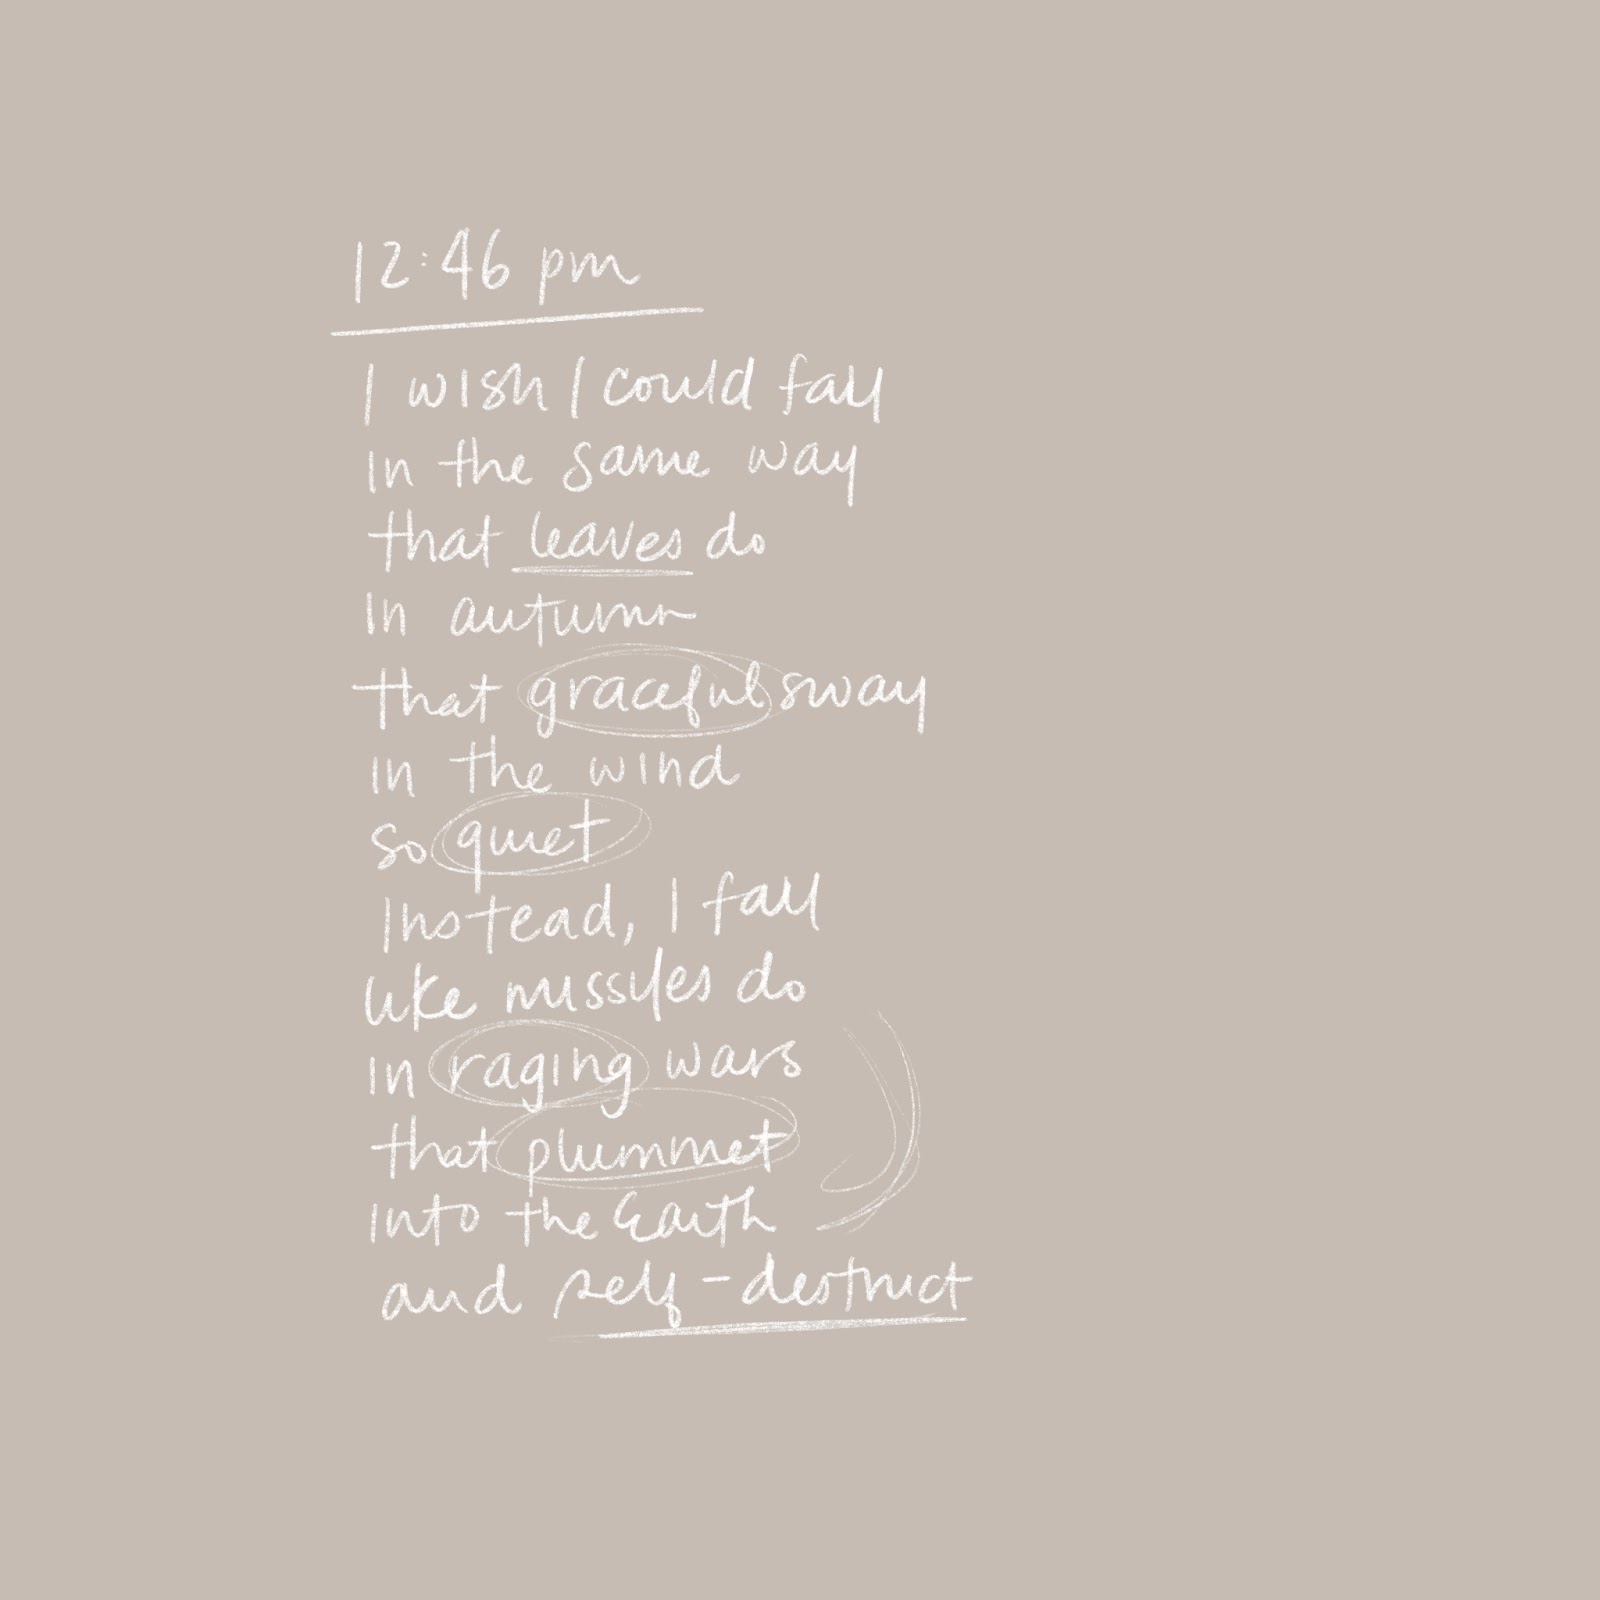 12:46 pm
I wish I could fall
in the same way
that leaves do
in autumn
that graceful sway
in the wind
so quiet
Instead, I fall
like missiles do
in raging wars
that plummet
into the Earth
and self-destruct